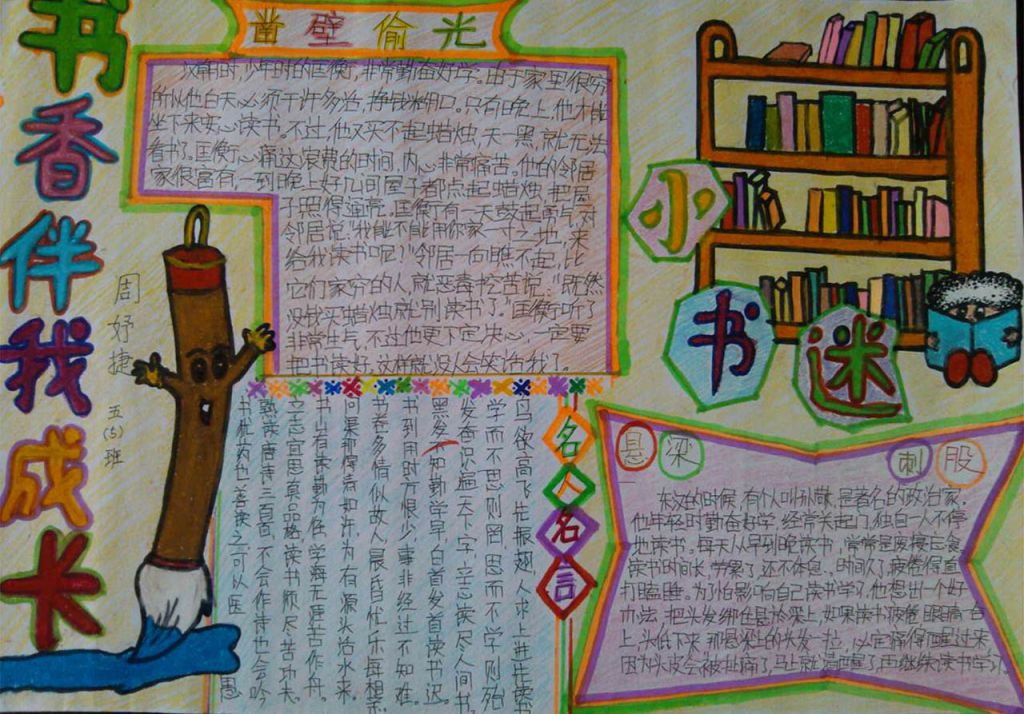 书香伴我成长
周妤捷
五(5)班
凿壁偷光
汉朝时,少年时的匡衡,非常勤奋好学。由于家里很穷
所以他白天必须干许多活,挣钱糊口。只有晚上,他才能
坐下来安心读书。不过,他又买不起蜡烛,天一黑,就无法
看书了。匡衡心痛这浪费的时间,内心非常痛苦。他的邻居
家很富有,一到晚上好几间屋子都点起蜡烛,把屋
子照得通亮。匡衡有一天鼓起勇气,对
邻居说:"我能不能用你家一寸之地,来
给我读书呢?"邻居一向瞧不起,比
它们家穷的人,就恶毒挖苦说:"既然
没钱买蜡烛就别读书了。"匡衡听了
非常生气,不过他更下定决心,一定要
把书读好,这样就没人会笑话我了。
小书迷
名人名言
鸟欲高飞先振翅,人求上进先读书
学而不思则罔,思而不学则殆
发奋识遍天下字,立志读尽人间书
黑发不知勤学早,白首发首读书迟。
书到用时方恨少,事非经过不知难。
书卷多情似故人,晨昏忧乐每相
问渠那得清如许,为有源头活水来。
书山有路勤为径,学海无涯苦作舟。
立志宜思真品格,读书须尽苦功夫。
熟读唐诗三百首,不会作诗也会吟
书犹药也,善读之可以医愚
悬梁刺股
东汉的时候,有个叫孙敬,是著名的政治家,
他年轻时勤奋好学,经常关起门,独自一人不停
地读书。每天从早到晚读书,常常是废寝忘食。
读书时间长,劳累了,还不休息。时间久了,疲倦得直
打瞌睡。为了怕影响自己读书学习,他想出一个好
办法,把头发绑住悬于梁上,如果读书疲倦,眼睛一合
上,头低下来,那悬梁上的头发一拉,必定痛得醒过来
因为头皮会被扯痛了,马上就清醒了,再继续读书学习。